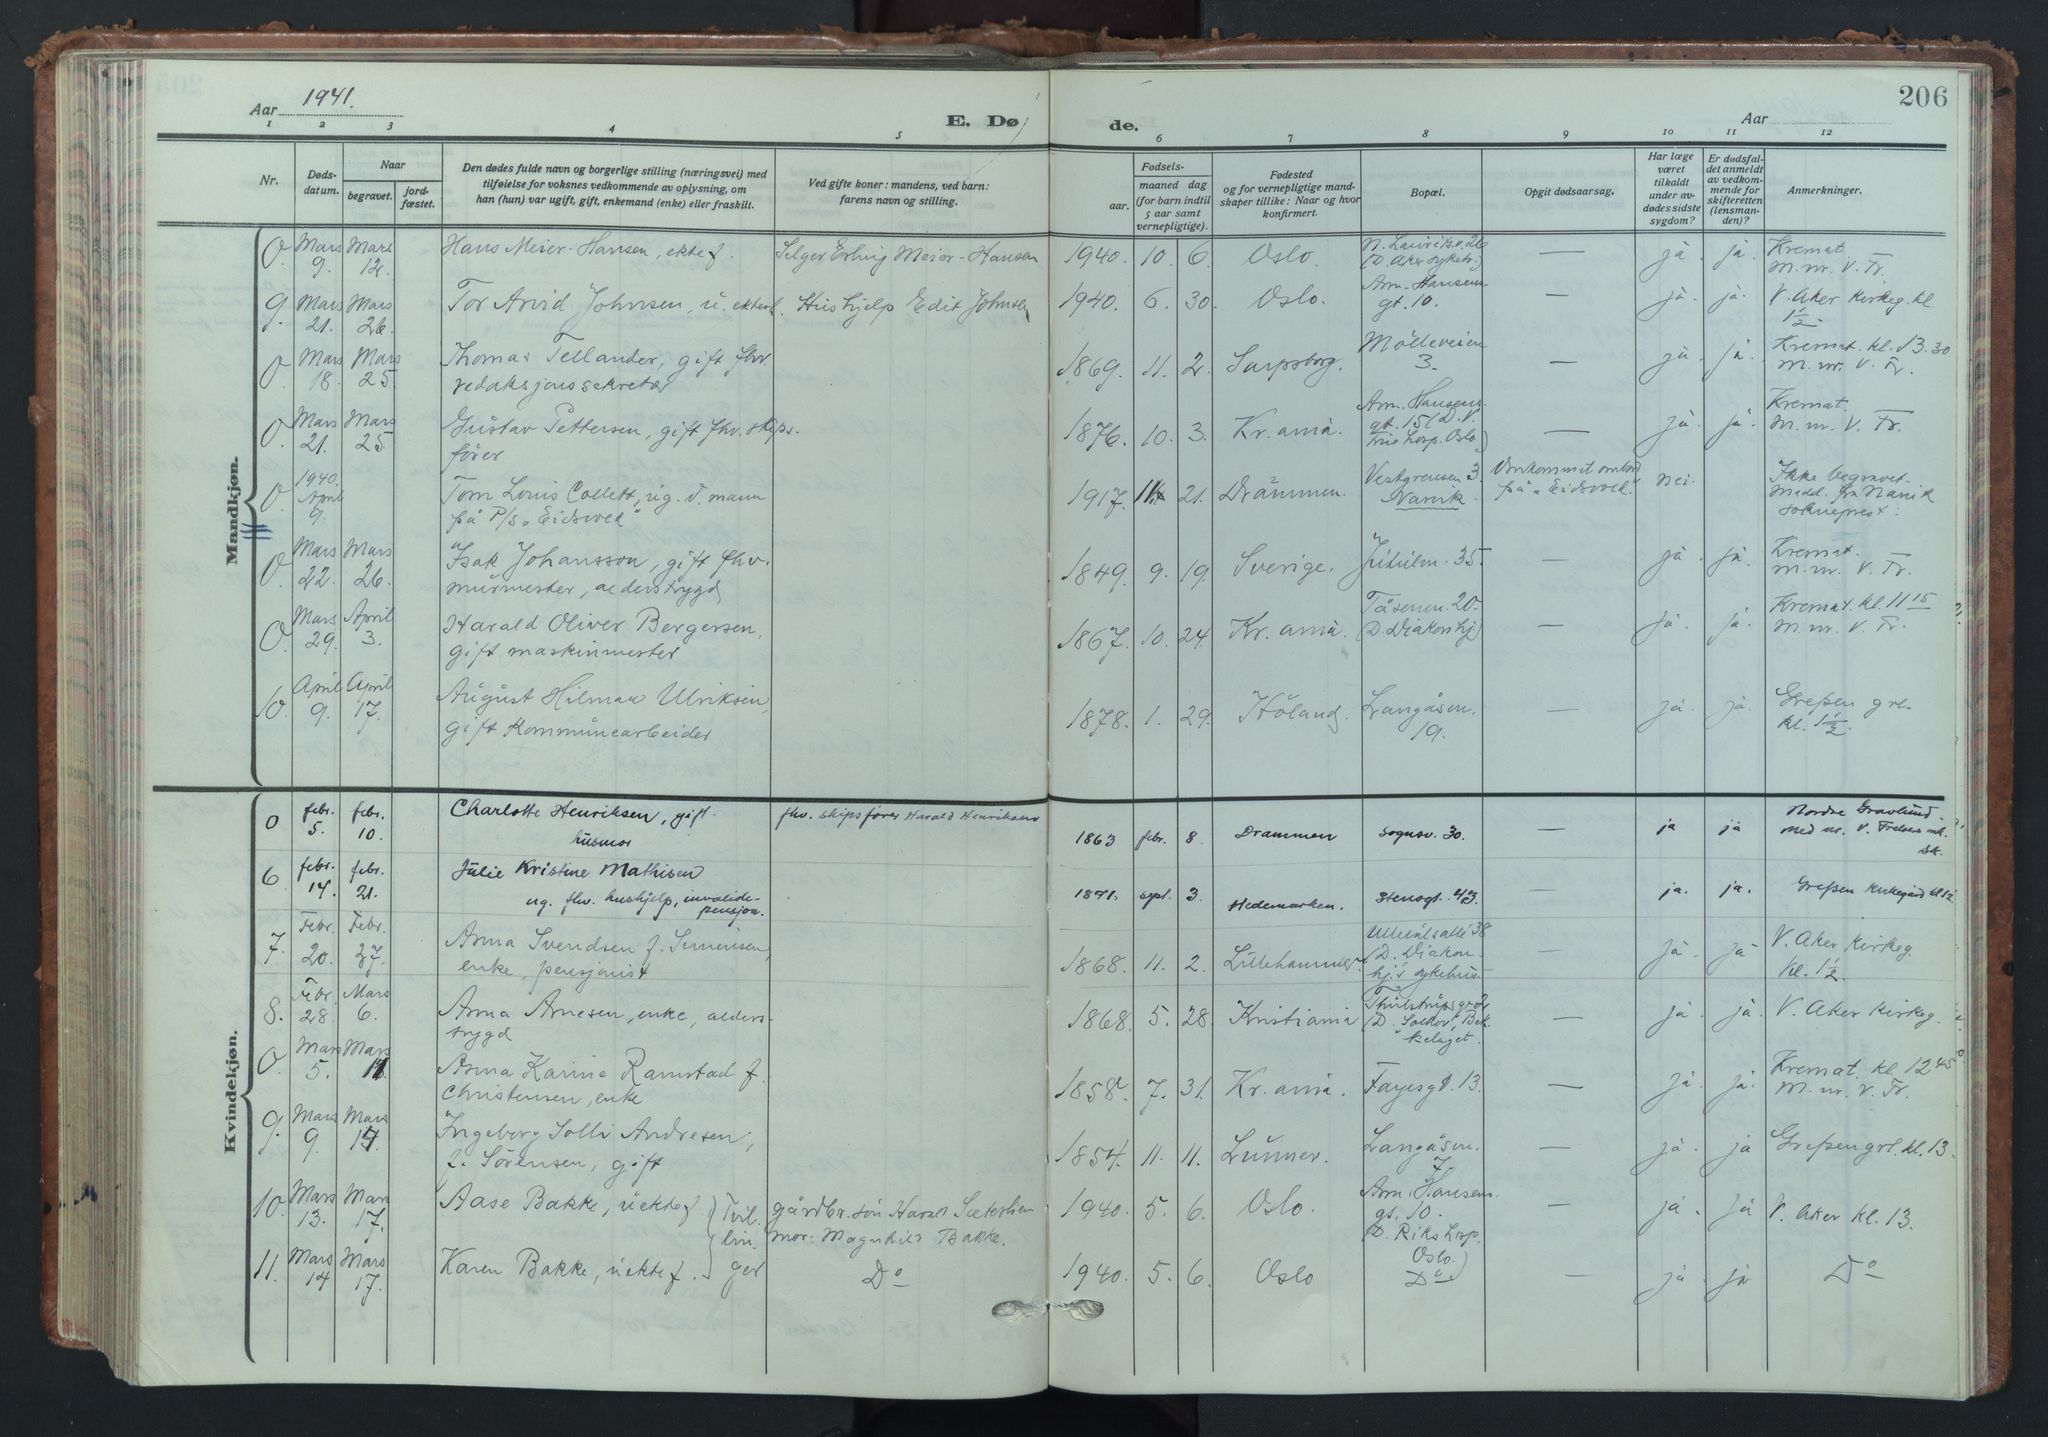 Aar 1941.
E. Dø
de.
Aar
206
1 2 3 4 5 6 7 8 9 10 11 12
Nr.
Døds-
datum.
Naar
begravet.
jord-
fæstet.
Den dødes fulde navn og borgerlige stilling (næringsvei) med
tilføielse for voksnes vedkommende av oplysning, om
han (hun) var ugift, gift, enkemand (enke) eller fraskilt.
Ved gifte koner: mandens, ved barn:
farens navn og stilling.
Fødsels-
aar.
maaned dag
(for barn indtil
5 aar samt
vernepligtige).
Fødested
og for vernepligtige mand-
skaper tillike: Naar og hvor
konfirmert.
Bopæl.
Opgit dødsaarsag.
Har læge
været
tilkaldt
under av-
dødes sidste
sygdom?
Er dødsfal-
det anmeldt
av vedkom-
mende for
skifteretten
(lensman-
den)?
Anmerkninger.
Mandkjøn.
0. Mars 9. Mars 12. Hans Meier-Hansen, ektef. Selger Erling Meier-Hansen 1940. 10. 6. Oslo. N. Lauritsv. 26 (D. Aker sykeh.) — ja. ja. Kremat.
M. nr. V. Fr.
9. Mars 21. Mars 26. Tor Arvid Johnsen, u. ekte Hushjelp Edit Johnsen 1940. 6. 30. Oslo. Arn. Hansens gt. 10. — ja. ja. V. Aker Kirkeg. kl.
1 1/2.
0. Mars 18. Mars 25. Thomas Tellander, gift fhv.
redaksjonssekretær 1869. 11. 2. Sarpsborg. Mölleveien 3. — ja. ja. Kremat. kl. 13.30
M. nr. V. Fr.
0. Mars 21. Mars 25. Gustav Pettersen, gift fhv. skips-
fører 1876. 10. 3. Kr.ania. Arn. Hansens gt. 15 (D. V. Oslo) — ja. ja. Kremat.
M. nr. V. Fr.
0. 1940. April 9. Tom Louis Collett, ug. v. mann
på P/s "Eidsvold" 1917. 11. 21. Drammen. Vestgrensen 3. Narvik Omkommet ombord på "Eidsvold". nei. Ikke begravet.
Medd. fra Narvik
sokneprest.
0. Mars 22. Mars 26. Isak Johansson, gift fhv.
murmester, alderstrygd 1849. 9. 19. Sverige. Jutulv. 35. — ja. ja. Kremat.
M. nr. V. Fr.
0. Mars 29. April 3. Harald Oliver Bergersen,
gift maskinmester 1867. 10. 24. Kr.ania. Tåsenv. 20. (D. Diakonhj) — ja. ja. Kremat. kl. 11 15
M. nr. V. Fr.
10. April 9. April 17. August Hilmar Ulriksen,
gift Kommunearbeider 1878. 1. 29. Höland. Langåsen. 19. — ja. ja. Grefsen grl.
kl. 1 1/2.
Kvindekjøn.
0 febr. 5. febr. 10. Charlotte Henriksen, gift
husmor fhv. skipsfører Harald Henriksen 1863 febr. 8. Drammen Sognsv. 30. — ja ja Nordre Gravlund.
med nr. V. Frelsers
6 febr. 14. febr. 21. Julie Kristine Mathisen
ug. fhv. hushjelp, invalide-
pensjon. 1871. sept. 3. Hedemarken. Stensgt. 43. ja. ja. Grefsen Kirkegård kl 12
7. Febr. 20. Febr. 27. Anna Svendsen f. Simensen,
enke, pensjonist 1868. 11. 2. Lillehammer Ullevålsalle 38 (D. Diakon-hj's sykehus — ja. ja. V. Aker Kirkeg.
Kl. 1 1/2.
8. Febr. 28. Mars 6. Anna Arnesen, enke, alders-
trygd 1868. 5. 28. Kristiania Thulstrupsgt. 2 (D. Solhov, Bekkelaget. — ja. ja. V. Aker Kirkeg.
0. Mars 5. Mars 11. Anna Karine Ramstad f.
Christensen, enke 1858. 7. 31. Kr.ania. Fayesgt. 13. — ja. ja. Kremat. kl. 12 45
M. nr. V. Fr.
9. Mars 9. Mars 14. Ingeborg Solli Andresen,
f. Sörensen, gift 1854. 11. 11. Lunner. Langåsen. 7. — ja. ja Grefsen grl. kl. 13.
10. Mars 13. Mars 17. Aase Bakke, uektef. Tvil- gårdbr. sön Harald Sæterlien
mor: Magnhild Bakke. 1940. 5. 6. Oslo. Arn. Hansens gt. 10. (D. Riks hosp. Oslo.) — ja. ja V. Aker kl. 13.
11. Mars 14 Mars 17. Karen Bakke, uektef. lin- ger Do 1940. 5. 6. Oslo Do — ja. ja Do